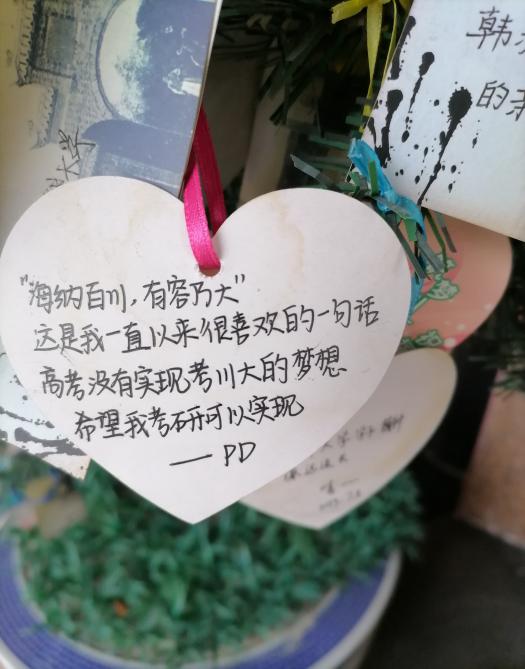 韩
的
大学
"海纳百川,有容乃大"
这是我一直以来很喜欢的一句话
高考没有实现考川大的梦想
希望我考研可以实现
— PD